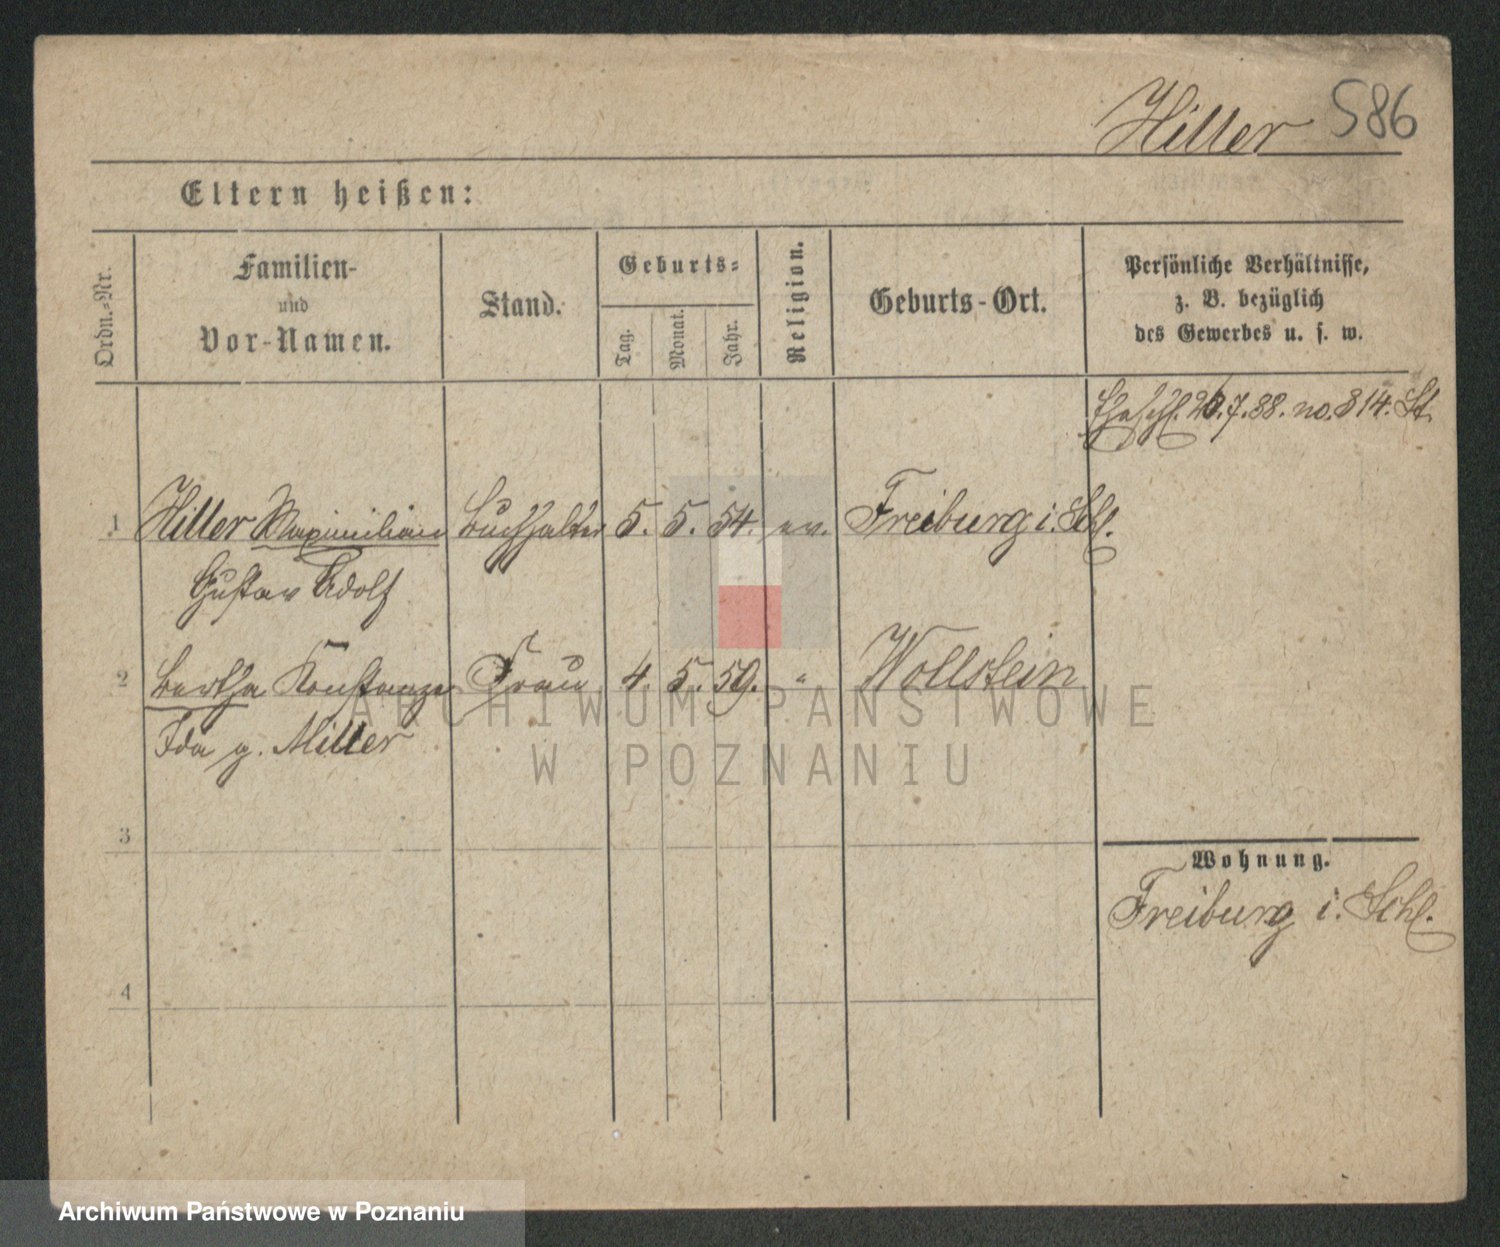 Hiller 586
Eltern heißen:
Ordn.-Nr.
Familien-
und
Vor-Namen.
Stand.
Geburts-
Tag.
Monat.
Jahr.
Religion.
Geburts-Ort.
Persönliche Verhältnisse,
z. B. bezüglich
des Gewerbes u. s. w.
Eheschl. 26.7.88. no. 814. St.
1 Hiller Maximilian Buchhalter 5. 5. 54. ev. Freiburg i. Schl.
Gustav Adolf
2 Bertha Konstanze Frau 4. 5. 59. " Wollstein
Ida g. Miller
3
Wohnung.
Freiburg i. Schl.
4
ARCHIWUM PAŃSTWOWE
W POZNANIU
Archiwum Państwowe w Poznaniu